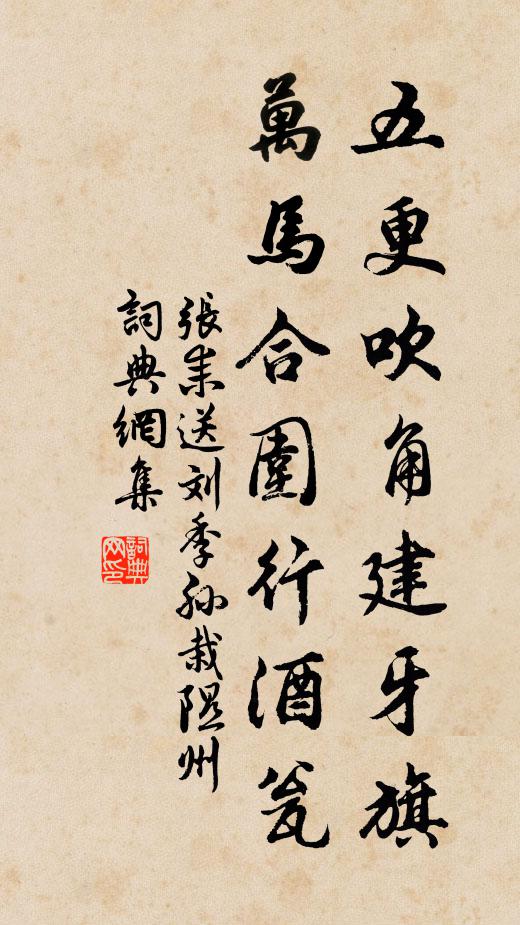 五更吹角建牙旗
萬馬合圍行酒瓮
張耒送刘季孙栽隰州
詞典網集
詞典网印